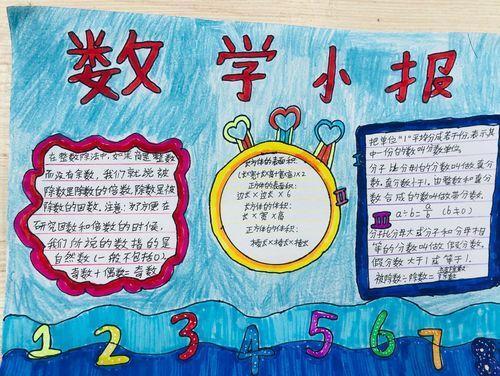 数学小报
在整数除法中,如果商是整数
而没有余数,我们就说被
除数是除数的倍数,除数是被
除数的因数。注意:为了方便在
研究因数和倍数的时候,
我们所说的数指的是
自然数(一般不包括0)。
奇数+偶数=奇数
长方体的表面积:
(长×宽+长×高+宽×高)×2
正方体的表面积:
边长×边长×6
长方体的体积:
长×宽×高
正方体的体积:
棱长×棱长×棱长
把单位"1"平均分成若干份,表示其
中一份的数叫分数单位。
分子比分母小的分数叫做真分
数,真分数小于1。由整数和真分
数合成的数叫做带分数。
a÷b=a/b (b≠0)
分子比分母大或分子和分母相
等的分数叫做假分数。
假分数大于1或等于1。
被除数÷除数=被除数/除数
1 2 3 4 5 6 7 8